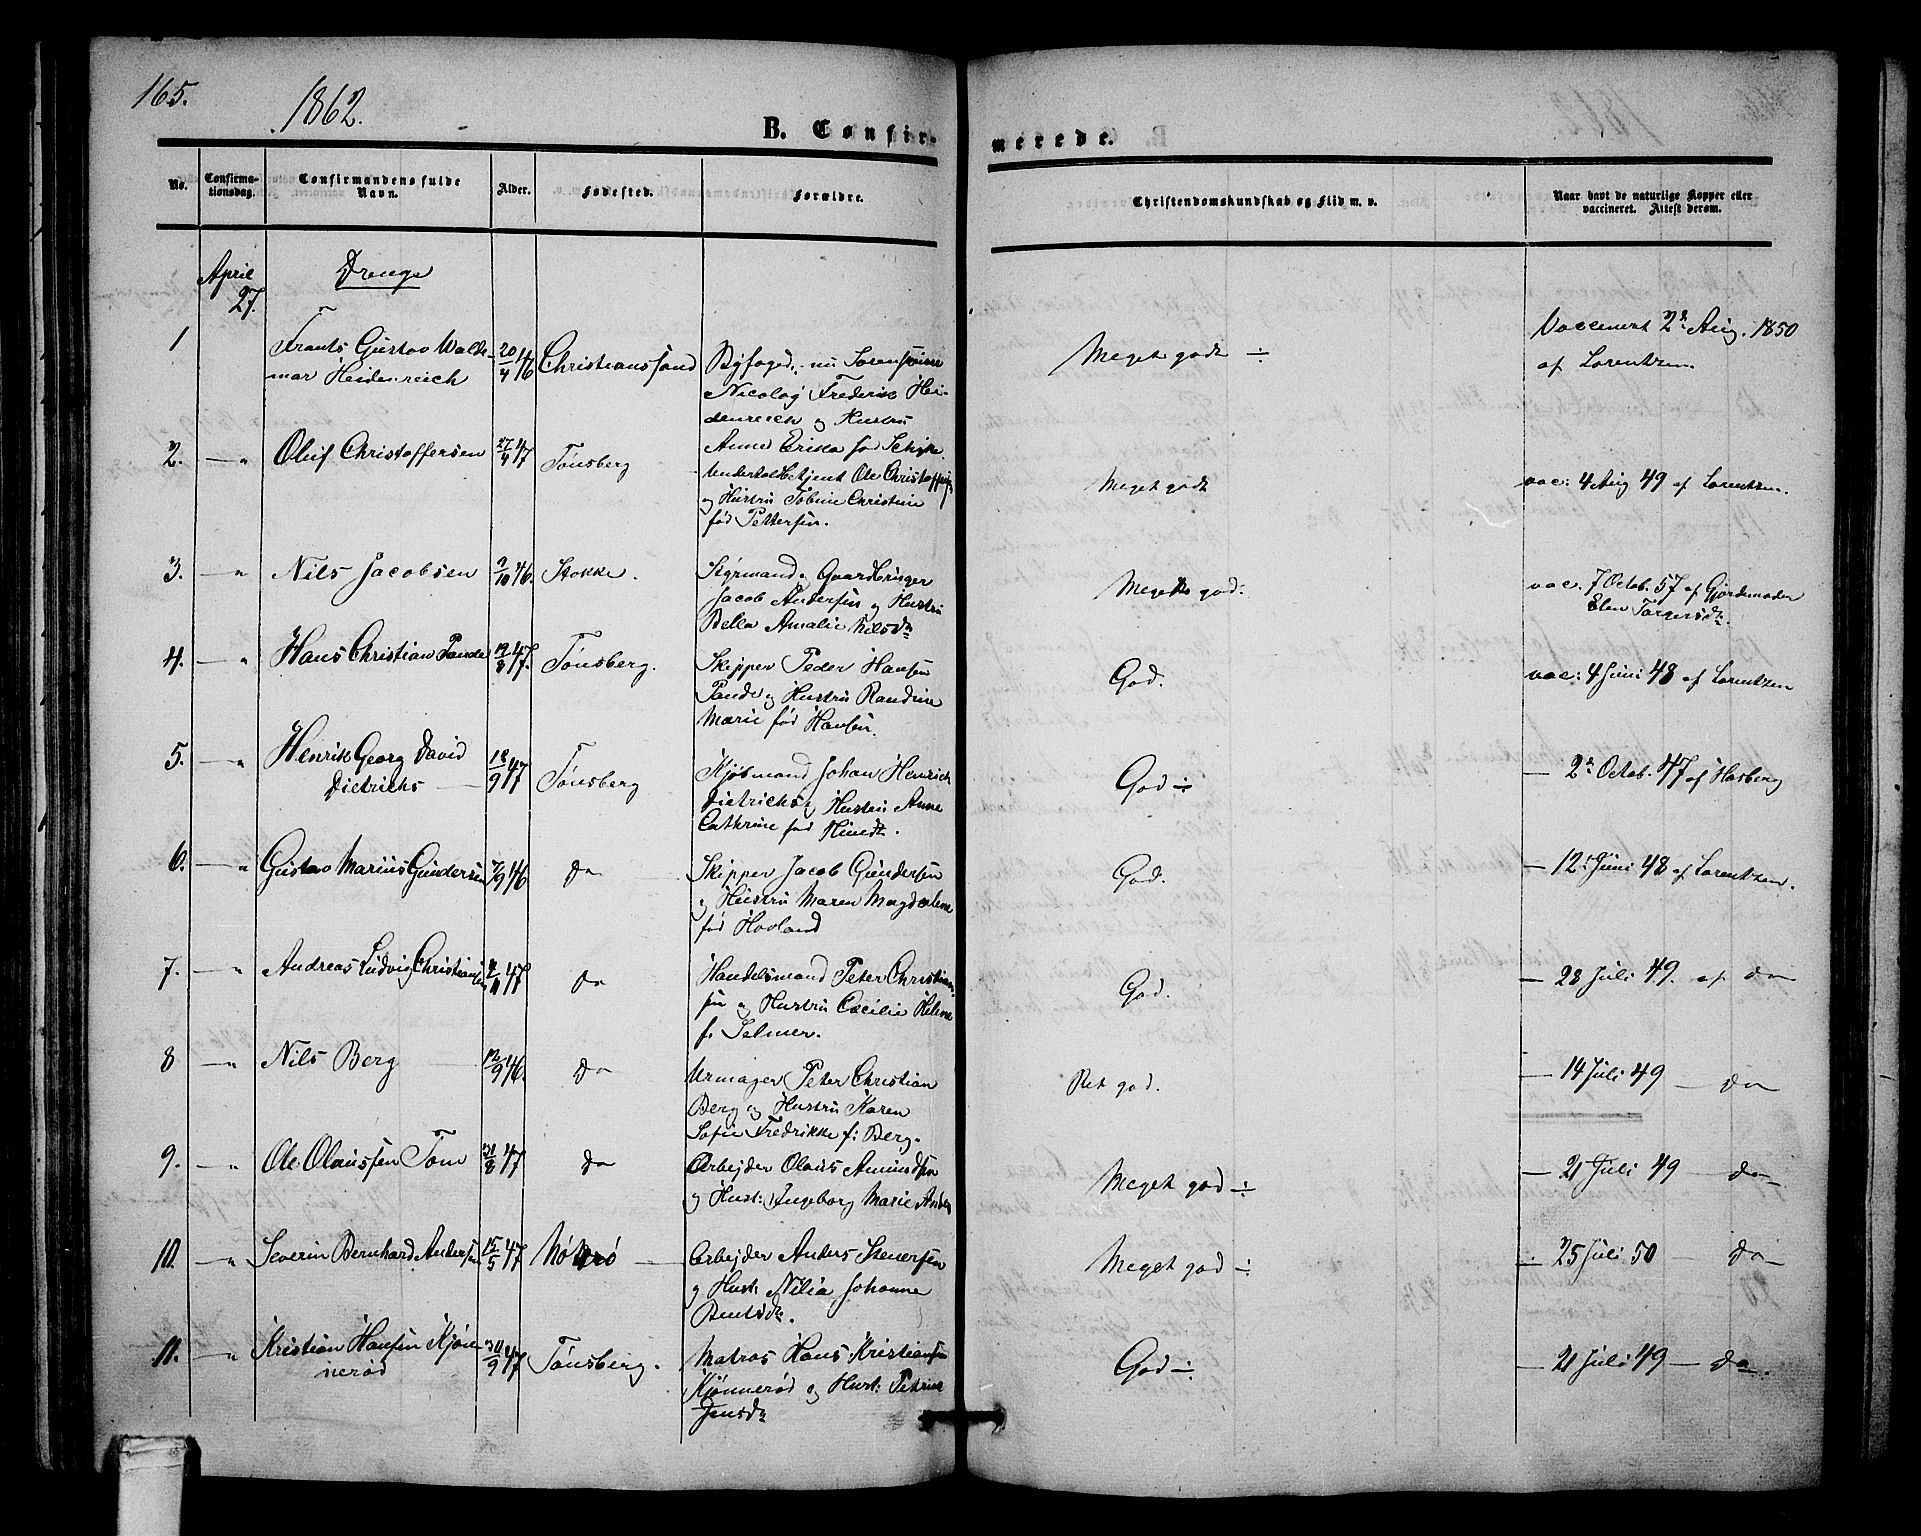 165.
1862.
B. Confirmerede.
No.
Confirmationsdag.
Confirmandens fulde Navn.
Alder.
Fødested.
Forældre.
Christendomskundskab og Flid m. v.
Naar havt de naturlige Kopper eller vaccineret. Attest derom.
April 27.
Drenge
1 Frants Gustav Waldemar Heidenreich 20/4 46 Christianssand Byfoged, nu Sorenskriver Nicolay Frederik Heidenreich og Hustru Anne Erika fød Meget godt ÷ Vaccinert 2 Aug. 1850 af Lorentzen.
2. —„ Oluf Christoffersen 27/4 47 Tønsberg Ole og Hustru Christine fød Pettersen. Meget godt vac: 4 Aug 49 af Lorentzen.
3. —„ Nils Jacobsen 9/10 46. Stokke. Styrmand, Gaardbruger Jacob Andersen og Hustru Bella Amalie Nilsd Meget god: vac. 7 Octob. 57 af Gjordemoder Elen Torgersd.
4. —„ Hans Christian Pande 19/8 47. Tønsberg. Skipper Peder Hansen Pande og Hustru Randine Marie fød Hansen. God. vac: 4 Juni 48 af Lorentzen
5. —„ Henrik Georg David Dietrichs — 18/9 47 Tønsberg Kjøbmand Johan Henrich Dietrichs, Hustru Anne Cathrine fød God ÷ — 2 Octob. 47 af Hasberg
6. —„ Gustav Marius Gundersen 7/9 46 Do Skipper Jacob Gundersen og Hustru Maren Magdalene fød Hovland God. — 12 Juni 48 af Lorentzen.
7. —„ Andreas Ludvig Christiansen 47 Do Handelsmand Peter Christiansen og Hustru Cæcilie Helene f. Selmer. God. — 28 Juli 49. af Do
8 —„ Nils Berg 12/9 46. Do Urmager Peter Christian Berg og Hustru Karen Sofie Fredrikke f: Berg. Ret god. — 14 Juli 49 — Do
9. —„ Ole Olaussen Tom 31/8 47 Do Arbejder Olaus Amundsen og Hust: Ingeborg Marie Meget god ÷ — 21 Juli 49 — Do
10. —„ Severin Bernhard Andersen 15/5 47 Nøtterø — Arbejder Anders Stenersen og Hust: Nilia Johanne Bentsd. Meget god ÷ — 25 Juli 50 — Do
11. —„ Kristian Hansen Kjønnerød 47 Tønsberg. Matros Hans Kristiansen Kjønnerød og Hust: Petrine Jensd God ÷ — 21 Juli 49 — Do.